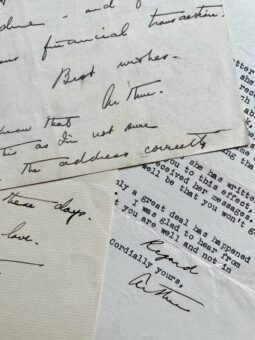 - and
financial transaction.
Best wishes -
Arthur.
know that
as I'm not sure
the address correctly
these days.
love.
she has
to this effect,
her messages.
well be that you won't
a great deal has happened
I was glad to hear from
you are well and not in
Cordially yours,
Regard
Arthur